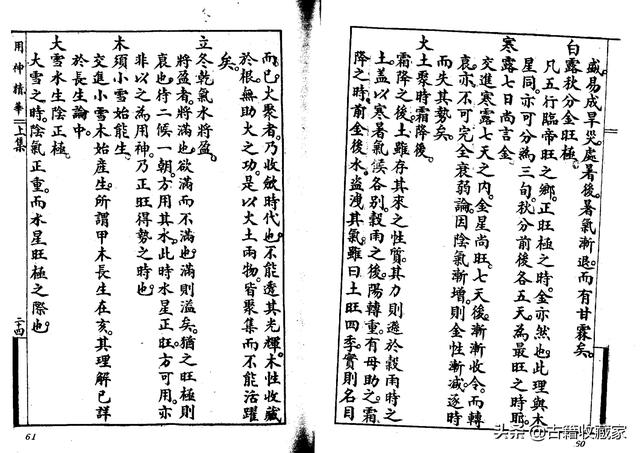 盛易成旱災。處暑後。暑氣漸退。而有甘霖矣。
白露秋分金旺極。
凡五行臨帝旺之鄉。正旺極之時。金亦然也。此理與木
星同。亦可分為三旬。秋分前後各五天。為最旺之時耶。
寒露七日尚言金。
交進寒露七天之内。金星尚旺。七天後。漸漸收令。而轉
衰。亦不可完全衰弱論。因陰氣漸增。則金性漸減。逐時
而失其勢矣。
火土聚時霜降後。
霜降之後。土雖存其來之性質。其力則遜於穀雨時之
土。蓋以寒暑氣候各別。穀雨之後。陽轉重。有母助之。霜
降之時。前金後水。盜洩其氣。雖曰土旺四季。實則名目
50
而已。火聚者。乃收斂時代也。不能透其光輝。木性收藏
於根。無助火之功。是以火土兩物。皆聚集而不能活躍
矣。
立冬乾氣水將盈。
將盈者。將滿也。欲滿而不滿也。滿則溢矣。猶之旺極則
衰也。待二候一朝。方用其水。此時水星正旺。方可用。亦
非以之為用神。乃正旺得勢之時也。
木須小雪始能生。
交進小雪。木始產生。所謂甲木長生在亥。其理解已詳
於長生論中。
大雪水生陰正極。
大雪之時。陰氣正重。而水星旺極之際也。
用神精華
上集
二十四
61
头条@古籍收藏家